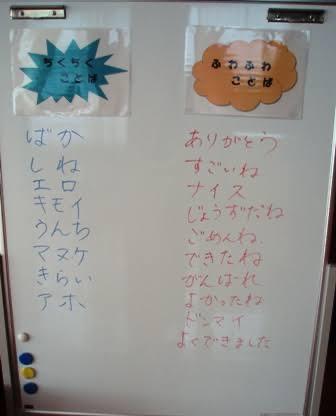 ちくちく
ことば
ばか
しね
エロ
キモイ
うんち
マヌケ
きらい
アホ
ふわふわ
ことば
ありがとう
すごいね
ナイス
じょうずだね
ごめんね
できたね
がんばれ
よかったね
ドンマイ
よくできました